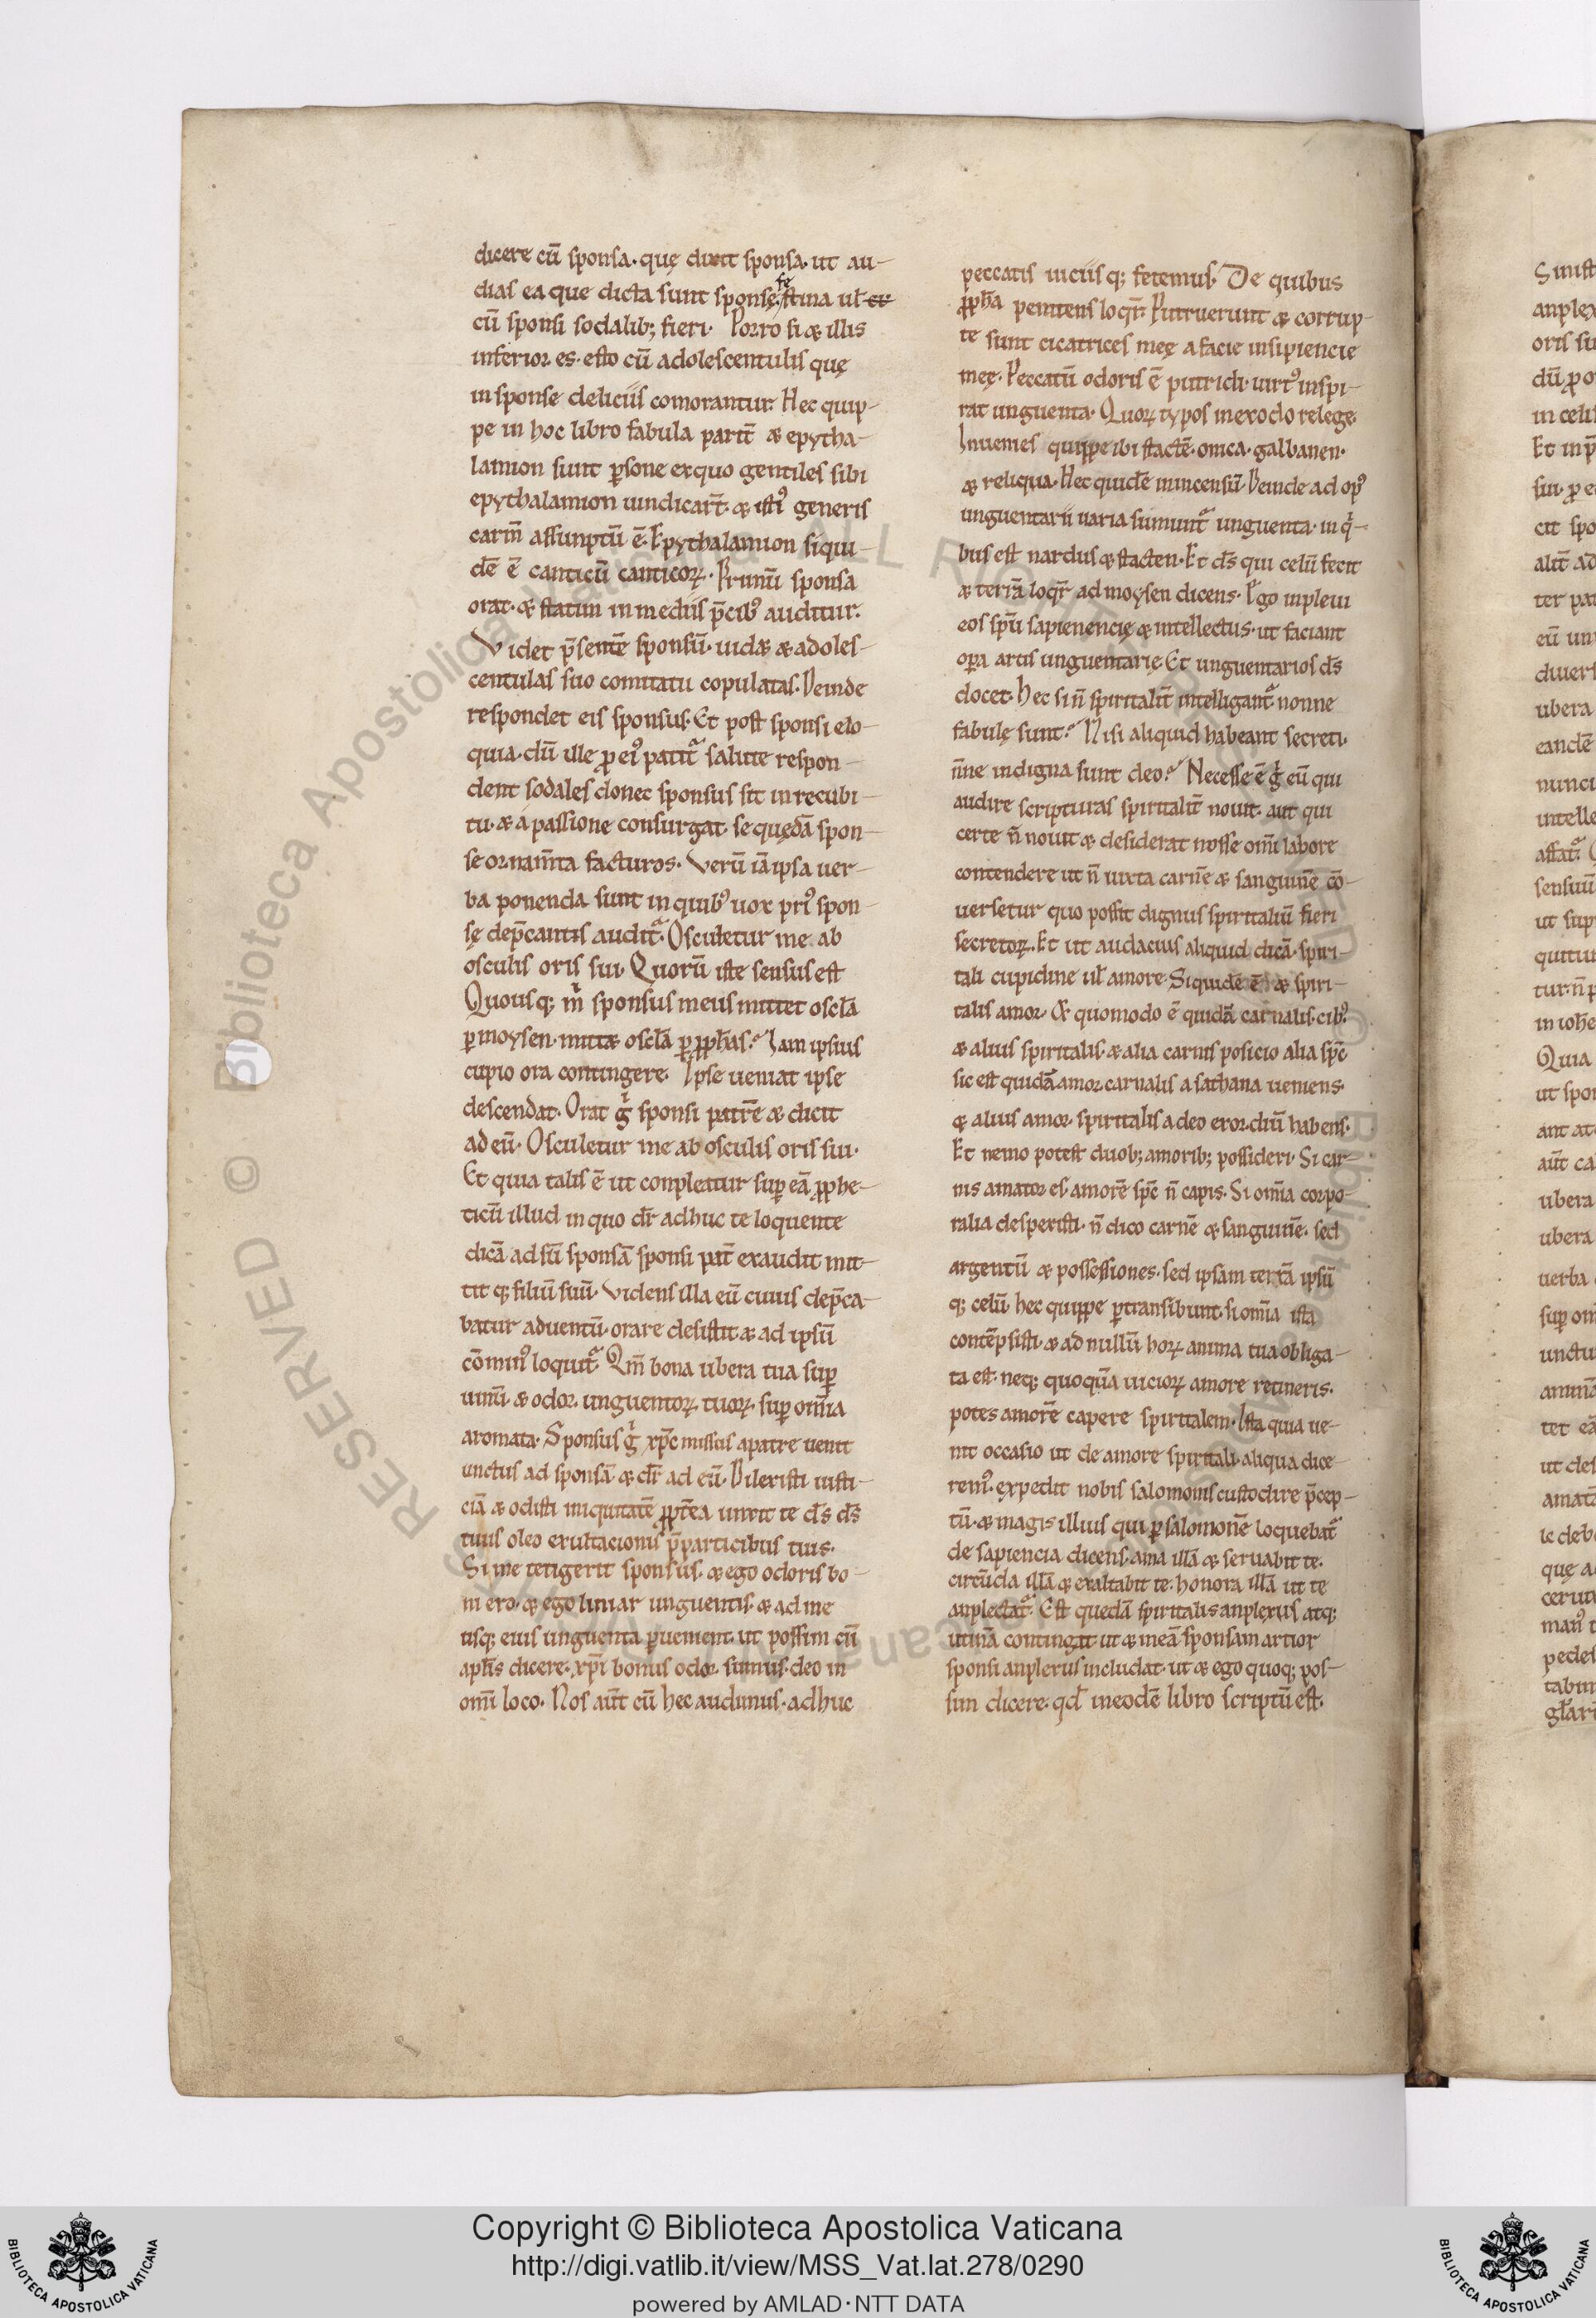 dicere cū sponsa. quę dixit sponsa. ut au-
dias ea que dicta sunt sponsę. festina ul̄
cū sponsi sodalib; fieri. Porro si & illis
inferior es. esto cū adolescentulis quę
in sponse deliciis comorantur. Hec quip-
pe in hoc libro fabula parit̄ & epytha-
lamion sunt p̱sone ex quo gentiles sibi
epythalamion uindicar̄t. & istꝰ generis
carm̄ assunptū ē. Epythalamion siqui-
dē ē canticū canticoꝝ. Primū sponsa
orat. & statim in mediis p̄cibꝰ auditur.
Videt p̄sentē sponsū. uid& & adoles-
centulas suo comitatu copulatas. Deinde
respondet eis sponsus. Et post sponsi elo-
quia. dū ille ꝓ eiꝰ patit̄ salute respon-
dent sodales donec sponsus sit in recubi-
tu. & a passione consurgat. se quędā spon-
se ornam̄ta facturos. Verū iā ipsa uer-
ba ponenda sunt in quibꝰ uox priꝰ spon-
sę dep̄cantis audit̄. Osculetur me ab
osculis oris sui. Quorū iste sensus est
Quousq; m̊ sponsus meus mittet oscl̄a
ꝑ moysen. mitt& oscl̄a ꝑ ꝓph̄as? Iam ipsius
cupio ora contingere. Ipse ueniat ipse
descendat. Orat g̊ sponsi patrē & dicit
ad eū. Osculetur me ab osculis oris sui.
Et quia talis ē ut conpleatur suꝑ eā ꝓphe-
ticū illud in quo dr̄ adhuc te loquente
dicā adsū sponsā sponsi pat̄ exaudit mit-
tit q; filiū suū. Videns illa eū cuius dep̄ca-
batur aduentū. orare desistit & ad ipsū
cōminꝰ loquit̄. Qm̄ bona ubera tua suꝑ
uinū. & odor unguentoꝝ tuoꝝ. suꝑ om̄ia
aromata. Sponsus g̊ xp̄c missus a patre uenit
unctus ad sponsā & dr̄ ad eū. Dilexisti iusti-
ciā & odisti iniquitatē ꝓpt̄ea unxit te ds̄ ds̄
tuus oleo exultacionis p̄ participibus tuis.
Si me tetigerit sponsus. & ego odoris bo-
ni ero. & ego liniar unguentis. & ad me
usq; eius unguenta ꝑuenient. ut possim cū
apl̄is dicere. xp̄i bonus odor sumus. deo in
om̄i loco. Nos aut̄ cū hec audimus. adhuc
peccatis uiciis q; fetemus. De quibus
ꝓph̄a penitens loqr̄. Putruerunt & corrup-
te sunt cicatrices meę a facie insipiencie
meę. Peccatū odoris ē putridi. uirtꝰ inspi-
rat unguenta. Quoꝝ typos in exodo relege.
Inuenies quippe ibi stactē. onica. galbanen.
& reliqua. Hec quidē in incensū. Deinde ad opꝰ
unguentarii uaria sumunt̄ unguenta. in q̊-
bus est nardus & stacten. Et ds̄ qui celū fecit
& terrā loqr̄ ad moysen dicens. Ego inpleui
eos spū sapienencię & intellectus. ut faciant
oꝑa artis unguentarię. Et unguentarios ds̄
docet. Hec si n̄ spiritalit̄ intelligant̄ nonne
fabulę sunt? Nisi aliquid habeant secreti.
n̄ne indigna sunt deo? Necesse ē g̊ eū qui
audire scripturas spiritalit̄ nouit. aut qui
certe n̄ nouit & desiderat nosse om̄i labore
contendere ut n̄ iuxta carnē & sanguinē cō-
uersetur quo possit dignus spiritaliū fieri
secretoꝝ. Et ut audacius aliquid dicā. spiri-
tali cupidine ul̄ amore. Siquidē ē & spiri-
talis amor. & quomodo ē quidā carnalis cibꝰ.
& alius spiritalis. & alia carnis posicio alia spc̄
sic est quidā amor carnalis a sathana ueniens.
& alius amor spiritalis a deo exordiū habens.
Et nemo potest duob; amorib; possideri. Si car-
nis amator es. amorē spc̄ n̄ capis. Si om̄ia corpo-
ralia desperisti. n̄ dico carnē & sanguinē. sed
argentū & possessiones. sed ipsam terrā ipsū
q; celū. hec quippe ꝑtransibunt. si om̄ia ista
contēpsisti. & ad nullū hoꝝ anima tua obliga-
ta est. neq; quoquā uicioꝝ amore retineris.
potes amorē capere spiritalem. Ista quia ue-
nit occasio ut de amore spiritali aliqua dice-
remꝰ. expedit nobis salomonis custodire p̄cep-
tū. & magis illius qui ꝑ salomonē loquebat̄
de sapiencia dicens. ama illā & seruabit te.
circūda illā & exaltabit te. honora illā ut te
anplectat̄. Est quedā spiritalis anplexus atq;
utinā contingat ut & meā sponsam artior
sponsi anplexus includat. ut & ego quoq; pos-
sim dicere. qd̄ in eodē libro scriptū est.
Copyright © Biblioteca Apostolica Vaticana
http://digi.vatlib.it/view/MSS_Vat.lat.278/0290
powered by AMLAD·NTT DATA